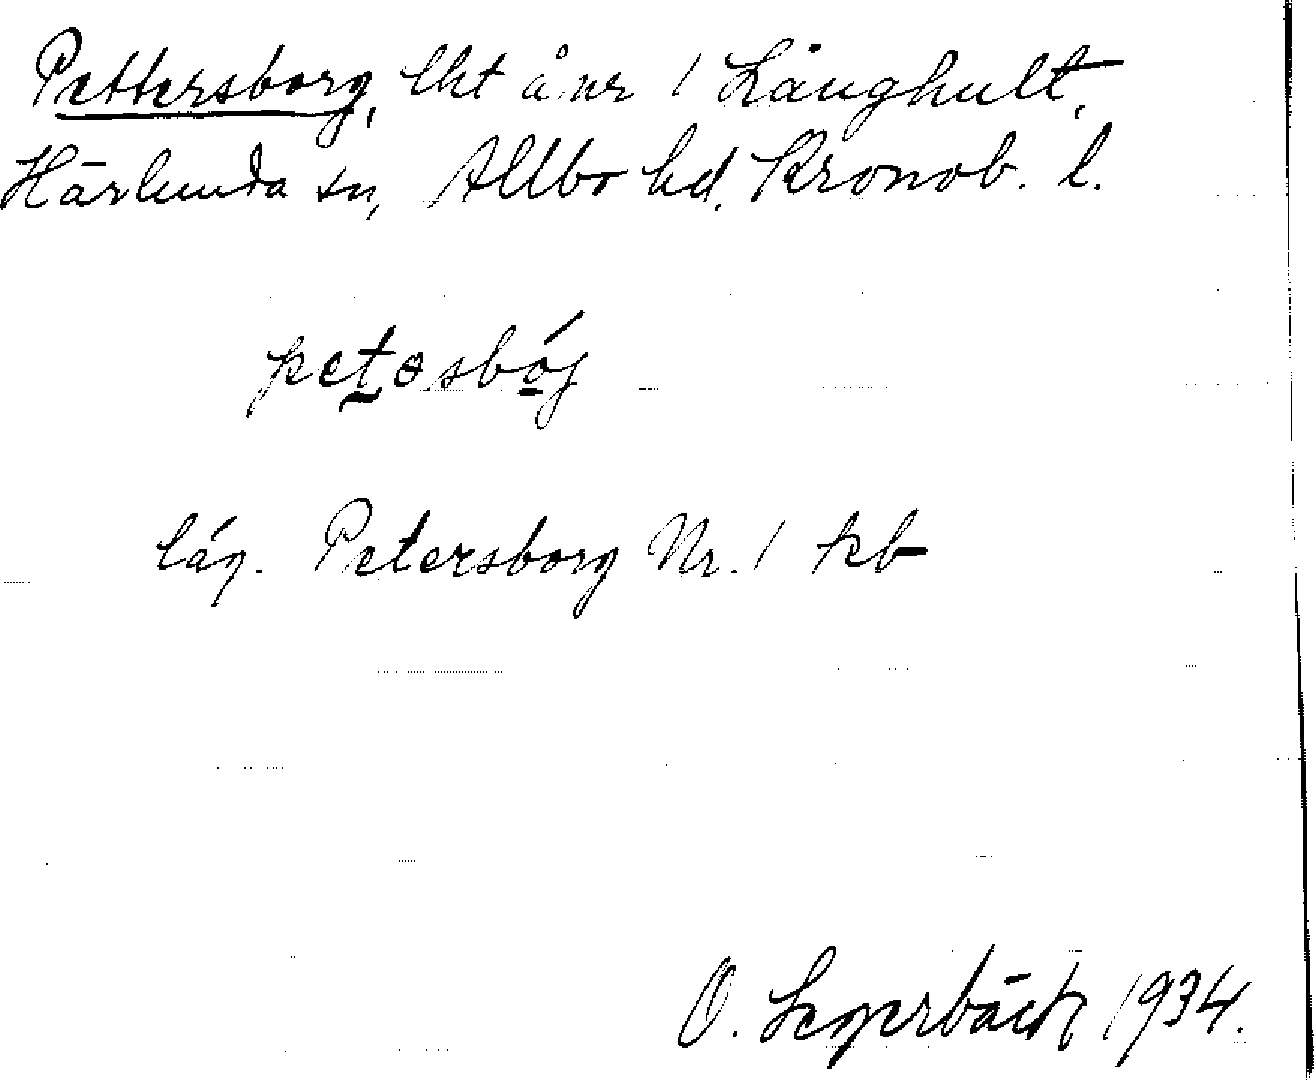 Pettersborg, lht å nr 1 Långhult,
Härlunda sn, Allbo hd, Kronob. l.
petəsbój
läg. Petersborg Nr. 1 kb
O. Segerbäck 1934.